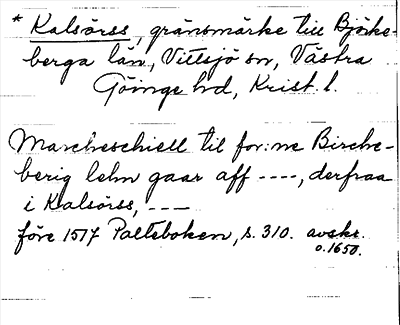 * Kalsörss, gränsmärke till Björke-
berga län, Vittsjö sn, Västra
Göinge hd, Krist. l.
Marcheschiell til for:ne Birche-
berig lehn gaar aff ----, derfraa
i Kalsörss, ---
före 1517 Palteboken, s. 310. avskr.
o. 1650.